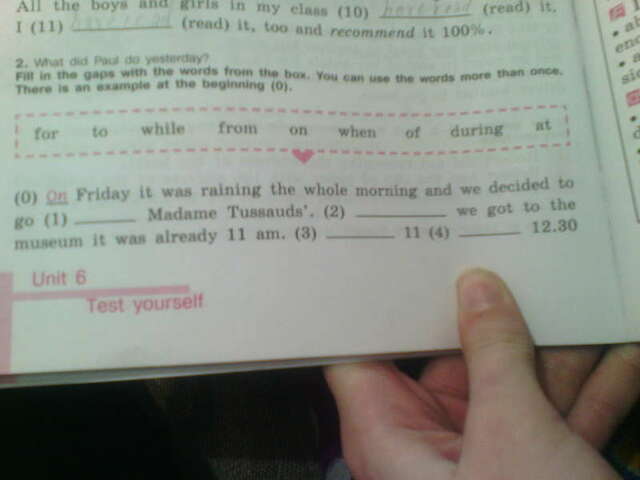 All the boys and girls in my class (10) have read (read) it.
I (11) have read (read) it, too and recommend it 100%.
2. What did Paul do yesterday?
Fill in the gaps with the words from the box. You can use the words more than once.
There is an example at the beginning (0).
for to while from on when of during at
(0) On Friday it was raining the whole morning and we decided to
go (1) ______ Madame Tussauds'. (2) ______ we got to the
museum it was already 11 am. (3) ______ 11 (4) ______ 12.30
Unit 6
Test yourself